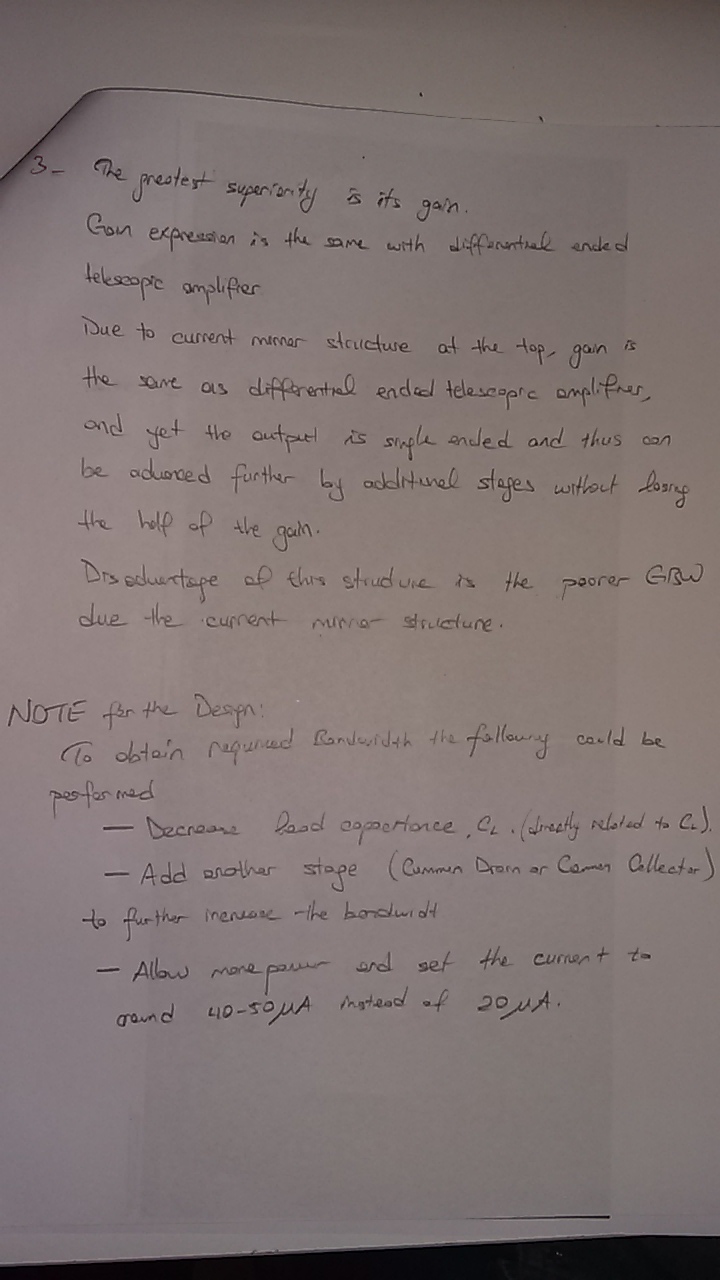 3- The greatest superiority is its gain.
Gain expression is the same with differential ended
telescopic amplifier
Due to current mirror structure at the top, gain is
the same as differential ended telescopic amplifier,
and yet the output is single ended and thus can
be advanced further by additional stages without losing
the half of the gain.
Disadvantage of this structure is the poorer GBW
due the current mirror structure.
NOTE for the Design:
To obtain required Bandwidth the following could be
performed
— Decrease load capacitance, CL. (directly related to CL).
— Add another stage (Common Drain or Common Collector)
to further increase the bandwidt
— Allow more power and set the current to
around 40-50μA instead of 20μA.